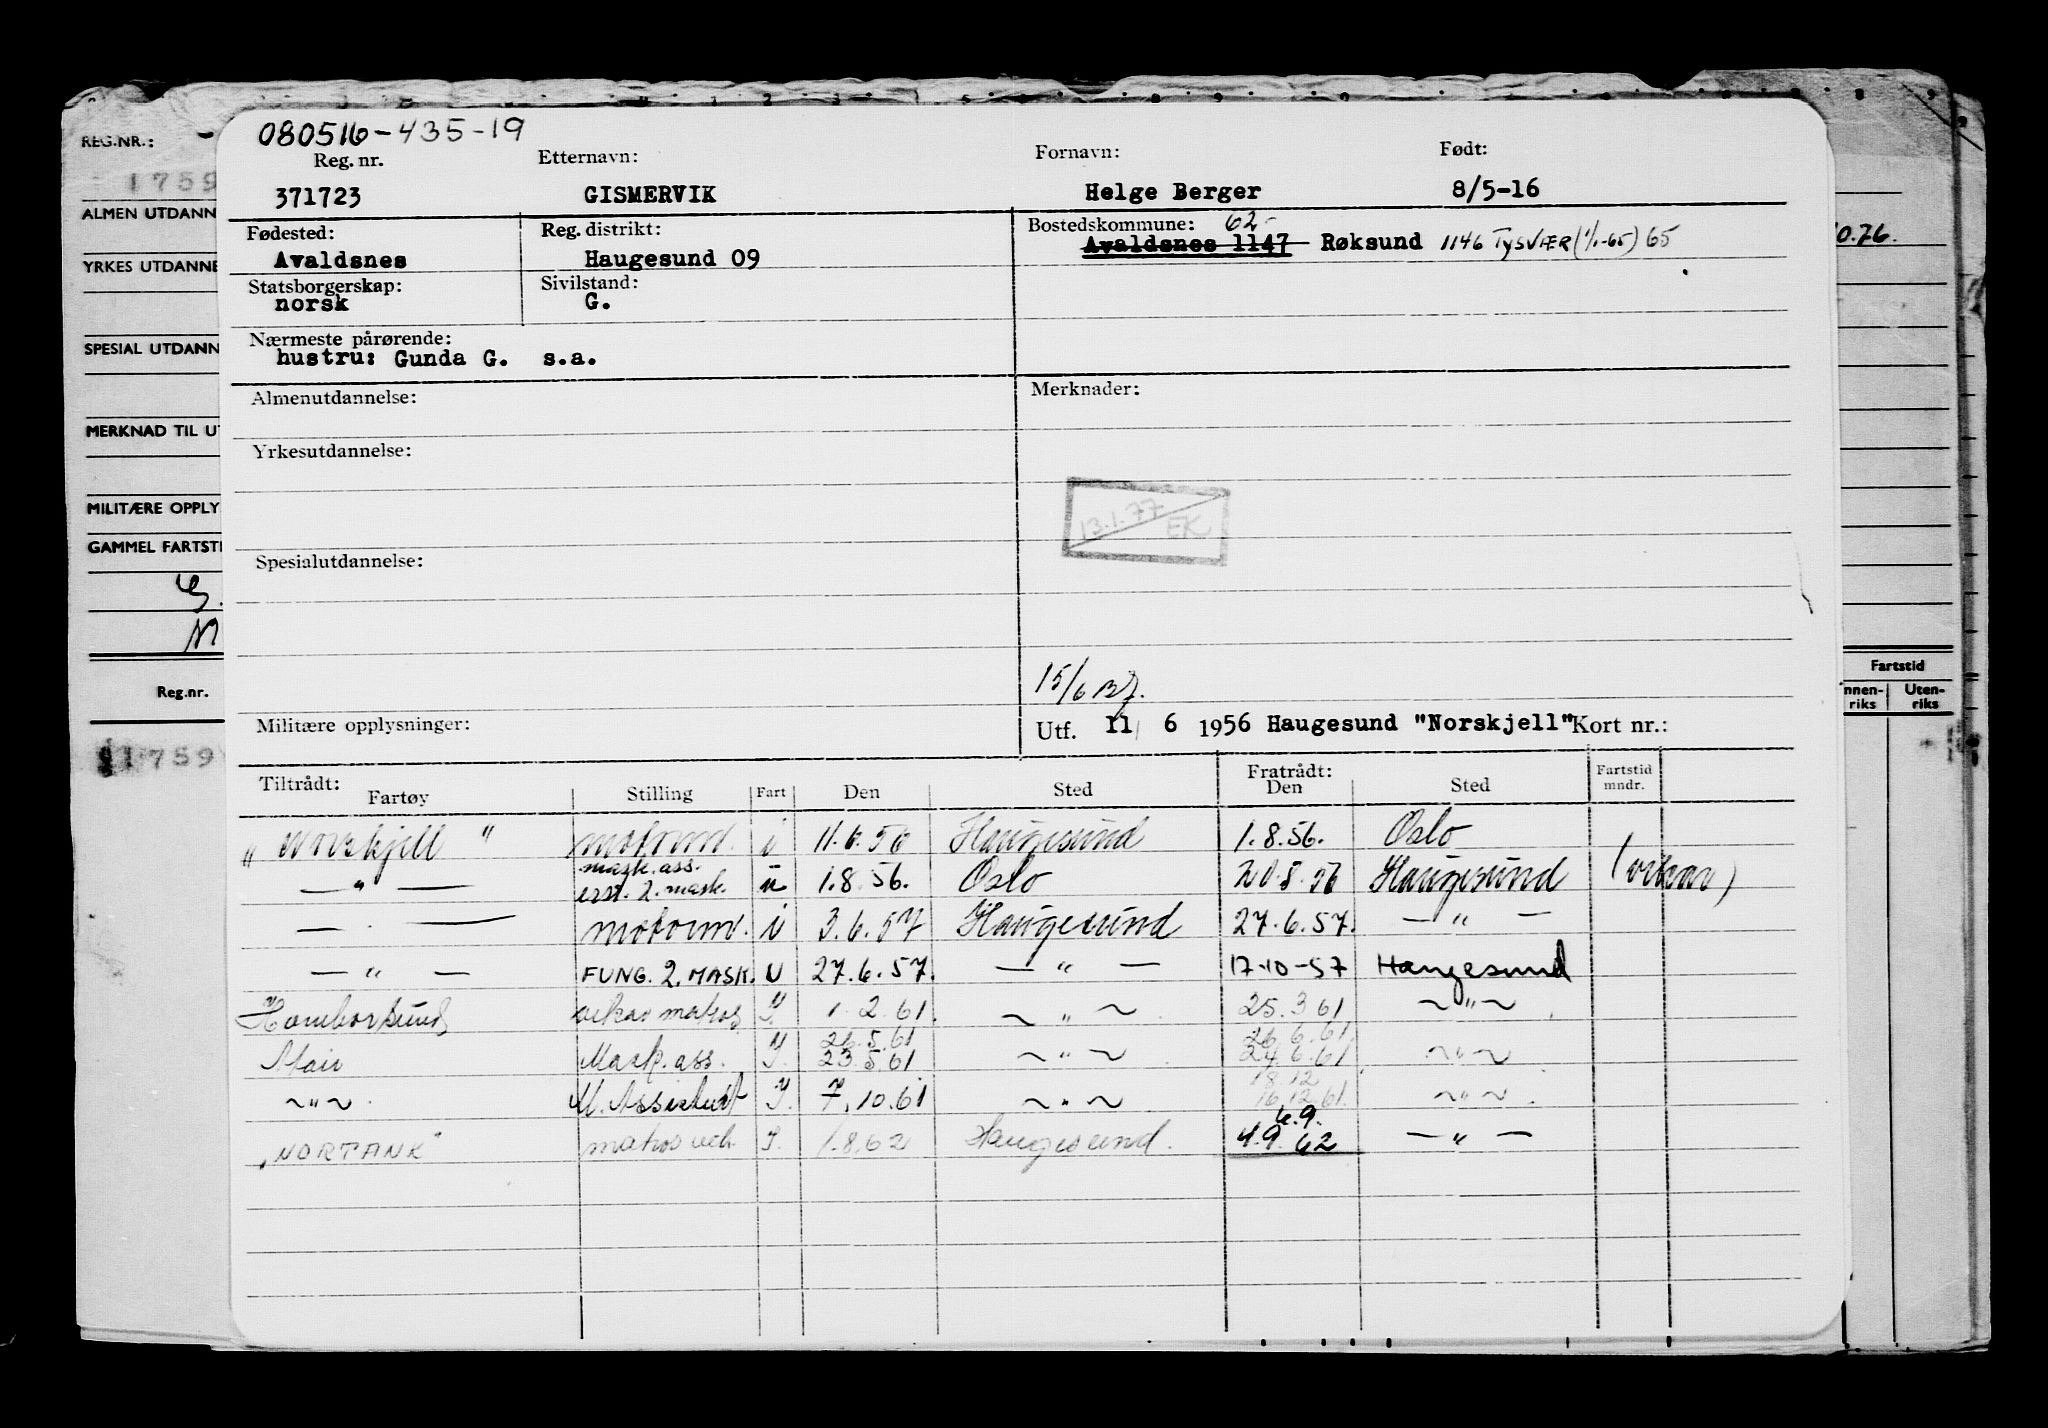 080516-435-19
REG.NR.: Reg. nr. Etternavn: Fornavn: Født:
1759 371723 GISMERVIK Helge Berger 8/5-16
ALMEN UTDANN
Fødested: Reg. distrikt: Bostedskommune: 62
Avaldsnes Haugesund 09 Avaldsnes 1147 Røksund 1146 TYSVÆR (1/1-65) 65 0.76.
YRKES UTDANNE
Statsborgerskap: Sivilstand:
norsk G.
SPESIAL UTDANN
Nærmeste pårørende:
hustru: Gunda G. s.a.
Almenutdannelse: Merknader:
MERKNAD TIL UT
Yrkesutdannelse:
MILITÆRE OPPLY
13.1.77 EK
GAMMEL FARTSTI
Spesialutdannelse:
15/6
Fartstid
Reg.nr. nnen-riks Uten-riks
Militære opplysninger: Utf. 11 6 1956 Haugesund "Norskjell" Kort nr.:
1759
Tiltrådt: Fratrådt: Fartstid mndr.
Fartøy Stilling Fart Den Sted Den Sted
"Norskjell" motorm. i 11.6.56 Haugesund 1.8.56. Oslo
—"— mask.ass. erst. 2. mask. u 1.8.56. Oslo 20.8.56 Haugesund (vikar)
— . — motorm. i 3.6.57 Haugesund 27.6.57. —"—
—"— FUNG. 2. MASK. U 27.6.57. —"— 17-10-57 Haugesund
Hamborsund vikar matros I 1.2.61. ~"~ 25.3 61 ~"~
26.5.61 26.6.61
Mask. ass. I. 23.5.61 ~"~ 24.6.61 ~"~
18.12
~"~. M. Assistent I. 7.10.61 ~"~ 16.12.61. ~"~.
6.9.
"NORTANK" matros I. 1.8.62 Haugesund. 4.9.62 —"—